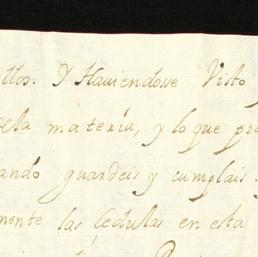 ttos. Y Haviendosse Visto
ela materia, y lo que pi
ando guardeis y cumplais
mente las Cedullas en esta